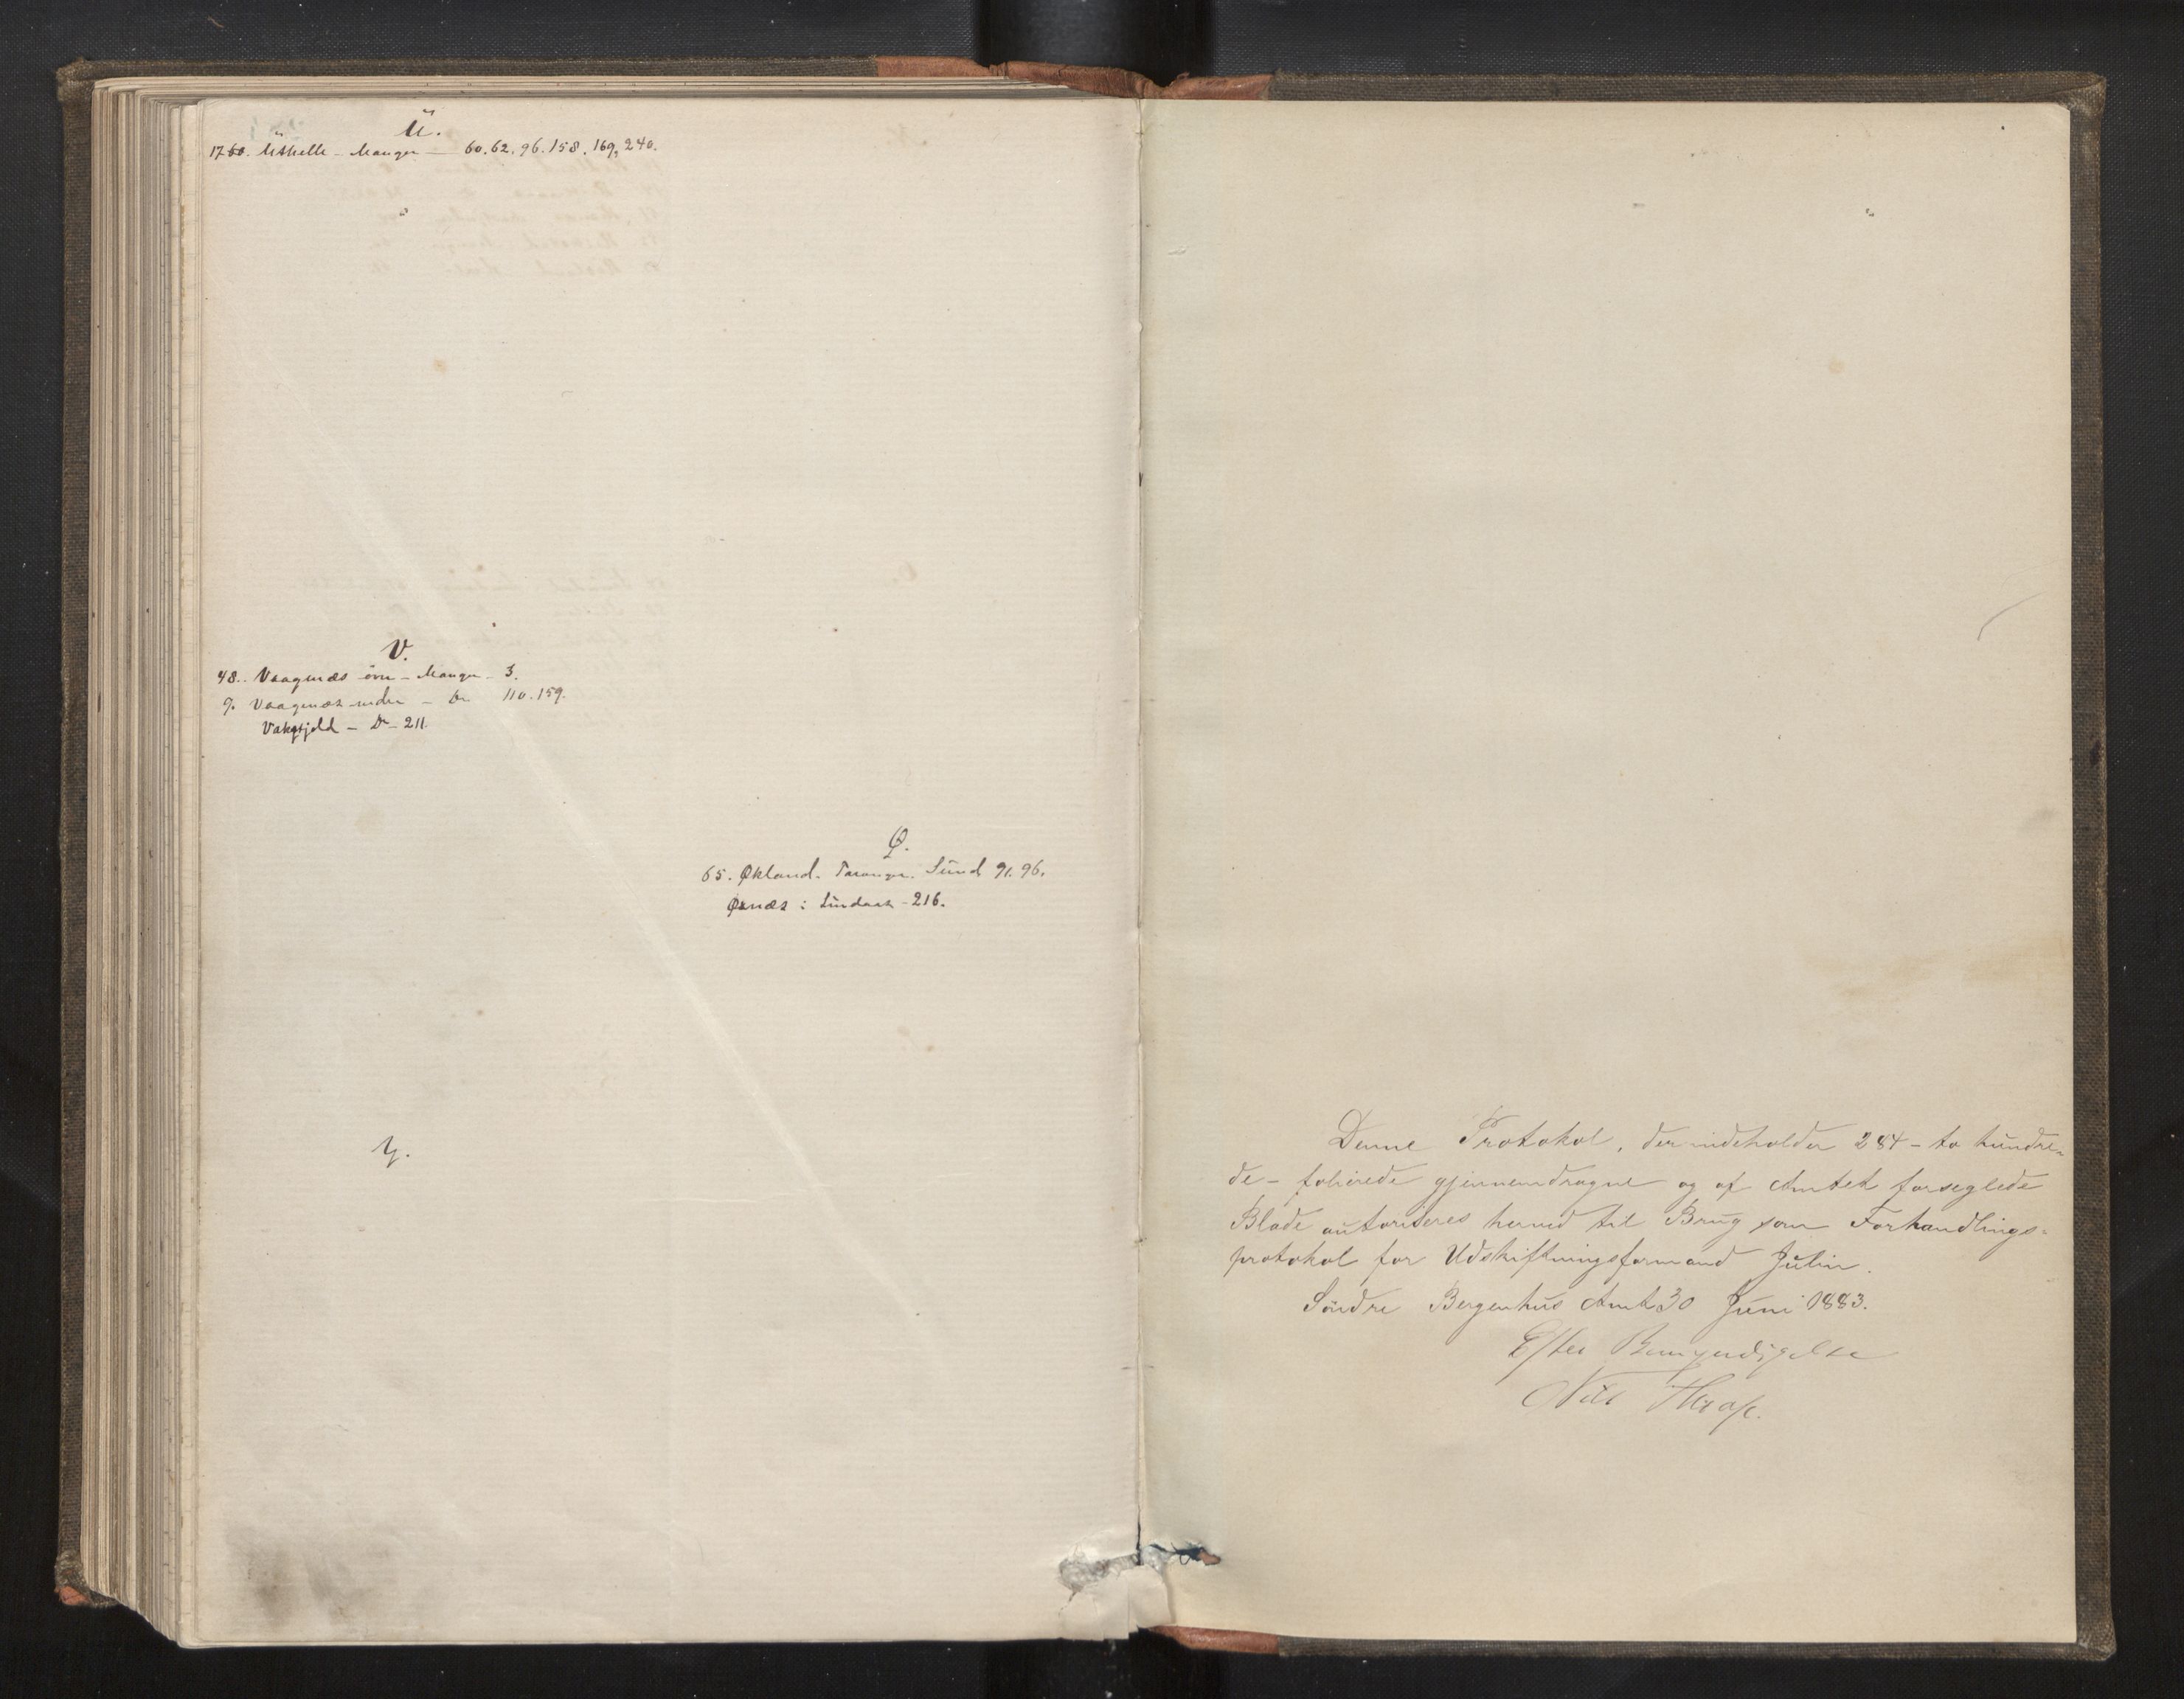 U.
1760. Utskelle - Manger - 60. 62. 96. 158. 169, 240.
V.
48. Vaagenæs övre - Manger - 3.
9. Vaagenæs nedre - Do 110. 159.
Do - 211.
Ø.
65. Økland. Sund 91. 96.
Øxnæs i Lindaas - 216.
Y.
Denne Protokol, der indeholder 284 - to hundre-
de - folierede gjennemdragne og af Amtet forseglede
Blade autoriseres herved til Brug som Forhandlings-
protokol for Udskiftningsformand Julin.
Söndre Bergenhus Amt 30 Juni 1883.
Efter Bemyndigelse
Nils